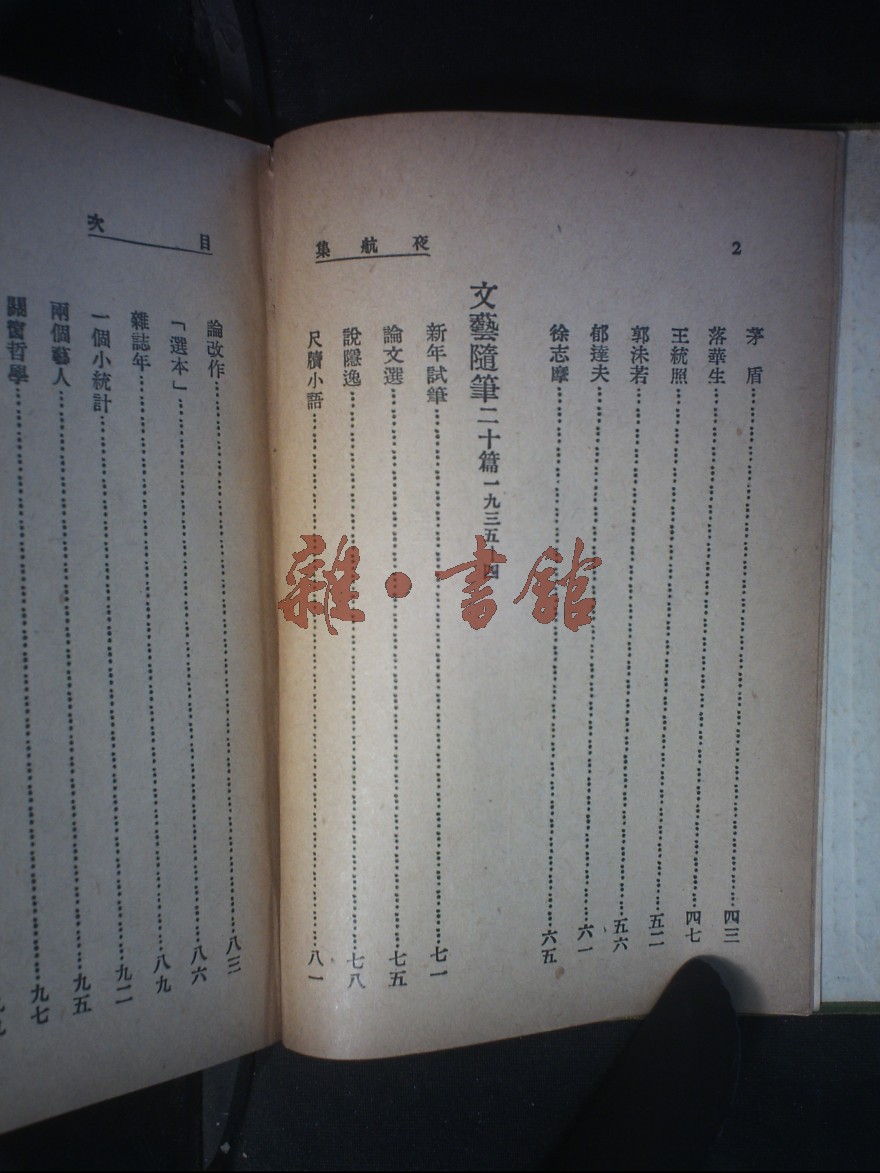 2
夜航集
茅盾……四三
落華生……四七
王統照……五二
郭沫若……五六
郁達夫……六一
徐志摩……六五
文藝隨筆二十篇一九三五 四
新年試筆……七一
論文選……七五
說隱逸……七八
尺牘小語……八一
目次
論改作……八三
「選本」……八六
雜誌年……八九
一個小統計……九二
兩個藝人……九五
哲學……九七
雜·書館